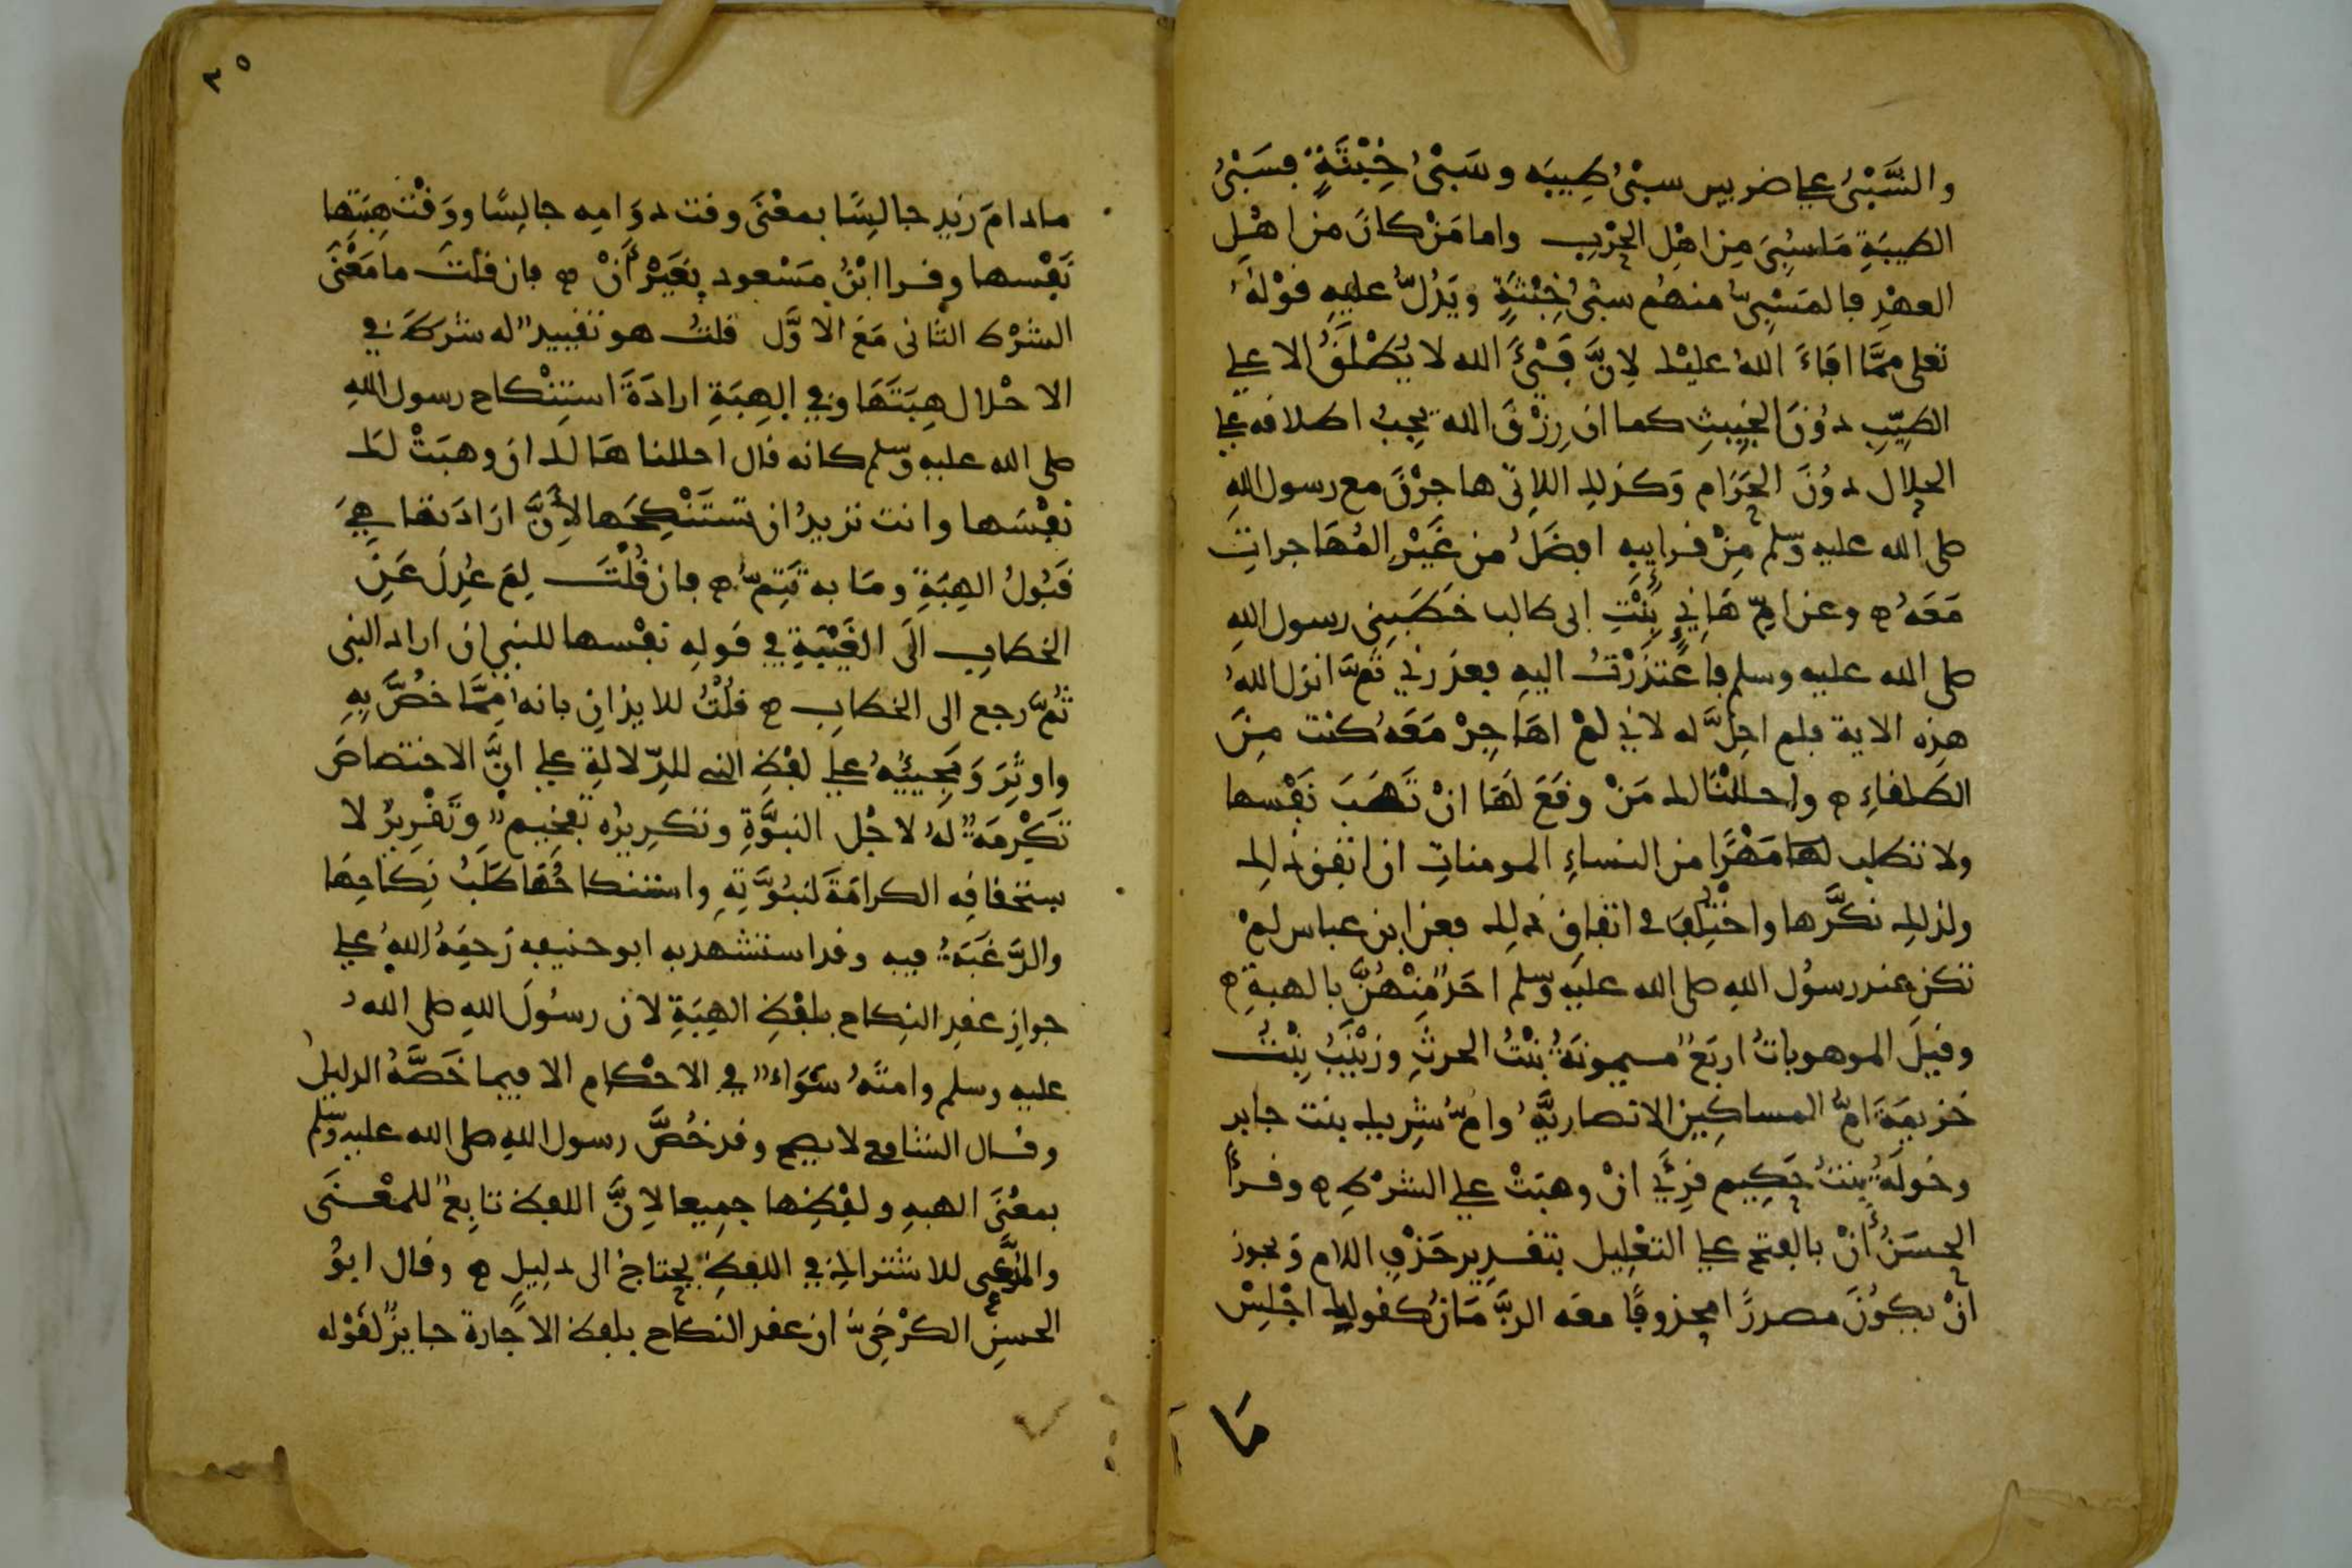 والسَّبْىُ على ضربين سبْىُ طِيبَه وسَبْىُ خِبْثَةٍ فسَبْىُ
الطيبَةِ مَا سُبِىَ مِن اهْلِ الحرْبِ واما مَنْ كانَ من اهْلِ
العهْدِ فالمَسْبِىّ منهُم سبْىُ خِبْثَةٍ ويَدُلُّ عليهِ قوْلهُ
تعلى ممَّا افاءَ اللهُ عليْك لِانَّ فَىْءَ الله لا يُطْلَقُ الا على
الطيِّبِ دوُنَ الخَبِيثِ كما ان رِزْقَ الله يجِبُ اطلاقه على
الحلال دوُنَ الحَرَام وَكذلك اللاتى هاجرْنَ مع رسول اللهِ
صلى الله عليه وسلم مِنْ قرايبِه افضَلُ من غَيْرِ المُهَاجراتِ
مَعَهُ ه وعن امِّ هَانِئٍ بِنْتِ ابى طالب خطَبَنِى رسول اللهِ
صلى الله عليه وسلم فاعْتذَرْتُ اليهِ فعذرنِي ثمَّ انزل اللهُ
هذِه الاية فلم احِلَّ له لانِي لمْ اهَاجِرْ مَعَه كنت مِنَ
الطلقاءِ ه واحللْنَا لك مَنْ وقَعَ لَهَا انْ تَهَبَ نَفْسها
ولا تطلب لهَا مَهْرًا من النساءِ المومناتِ ان اتفق ذلك
ولذلك نكَّرها واختُلِفَ في اتفاقِ ذلك فعن ابن عباس لمْ
تكن عند رسوُل اللهِ صلى الله عليه وسلم احَدٌ مِنْهُنَّ بالهبةِ ه
وقيلَ الموهوباتُ اربَعٌ ميمونَةُ بنْتُ الحرثِ وزيْنَبُ بِنْتُ
خزيمَةَ امُّ المساكِينِ الانصاريَّهُ وامُّ شرِيك بنت جابر
وخولَةُ بنتُ حَكِيم قرِئَ انْ وهبَتْ على الشرْطِ ه وقرأ
الحسَنُ أنْ بالفتح على التعْلِيل بتقدِير حَذْفِ اللام وَيجوز
انْ يكوُنَ مصدرًا محذوفًا معَه الزَّمَانُ كقولك اجْلِسْ
مَا
٣٥
مادامَ زيد جالِسًا بمعْنَى وقت دوَامِه جالِسًا ووَقْت هِبَتِها
نَفْسها وقرا ابْنُ مَسْعود بغيْر أَنْ ه فان قلْتَ ما مَعْنَى
الشرْط الثانى مَعَ الاوَّل قلتُ هو تقييدٌ له شرَطَ فى
الاحْلال هِبَتَهَا وفي الهِبَةِ ارادَةَ استِنْكاح رسول اللهِ
صلى الله عليه وسلم كانه قال احللناهَا لك ان وهبَتْ لك
نفْسَها وانت تريدُ ان تستَنْكِحَها لأنَّ ارَادَتها هِىَ
قبُولُ الهِبَةِ ومَا به تَتِمُّ ه فان قُلْتَ لِمَ عُدِلَ عَنِ
الخطابِ الَى الغَيْبَةِ في قولِه نفْسها للنبي ان اراد النبى
ثُمَّ رجع الى الخطابِ ه قُلْتُ للايذانِ بانه مِمَّا خُصَّ بِهِ
واوثِرَ وَمَجِيئُهُ على لفْظِ النبي للدّلالةِ على انَّ الاختصاصَ
تَكْرِمَةٌ لهُ لاجْل النبوَّةِ وتكرِيرُه تفخِيمٌ وتَقْرِيرٌ لا
ستحقاقِه الكرامَةَ لنبُوَّتِهِ واستنكاحُهَا طَلَبُ نِكَاحِهَا
والرَّغَبَةُ فيه وقد استشهد به ابو حنيفه رَحِمَهُ اللهُ على
جوازِ عقدِ النِكاح بلفْظِ الهِبَةِ لان رسُولَ اللهِ صلى اللهُ
عليه وسلم وامتَهُ سَوَاءٌ في الاحْكامِ الا فيما خَصَّهُ الدليلُ
وقال الشافعي لا يصح وقد خُصَّ رسول اللهِ صلى الله عليه وسلم
بمعْنَى الهبهِ ولفْظِها جمِيعا لِانَّ اللفظ تابِعٌ للمعْنَى
والمُدَّعِى للاشتراك في اللفظِ يحتاجُ الى دلِيلٍ ه وقال ابوُ
الحسنِ الكرْخِىُّ ان عقد النكاح بلفظ الاجَارة جايزٌ لقوْله